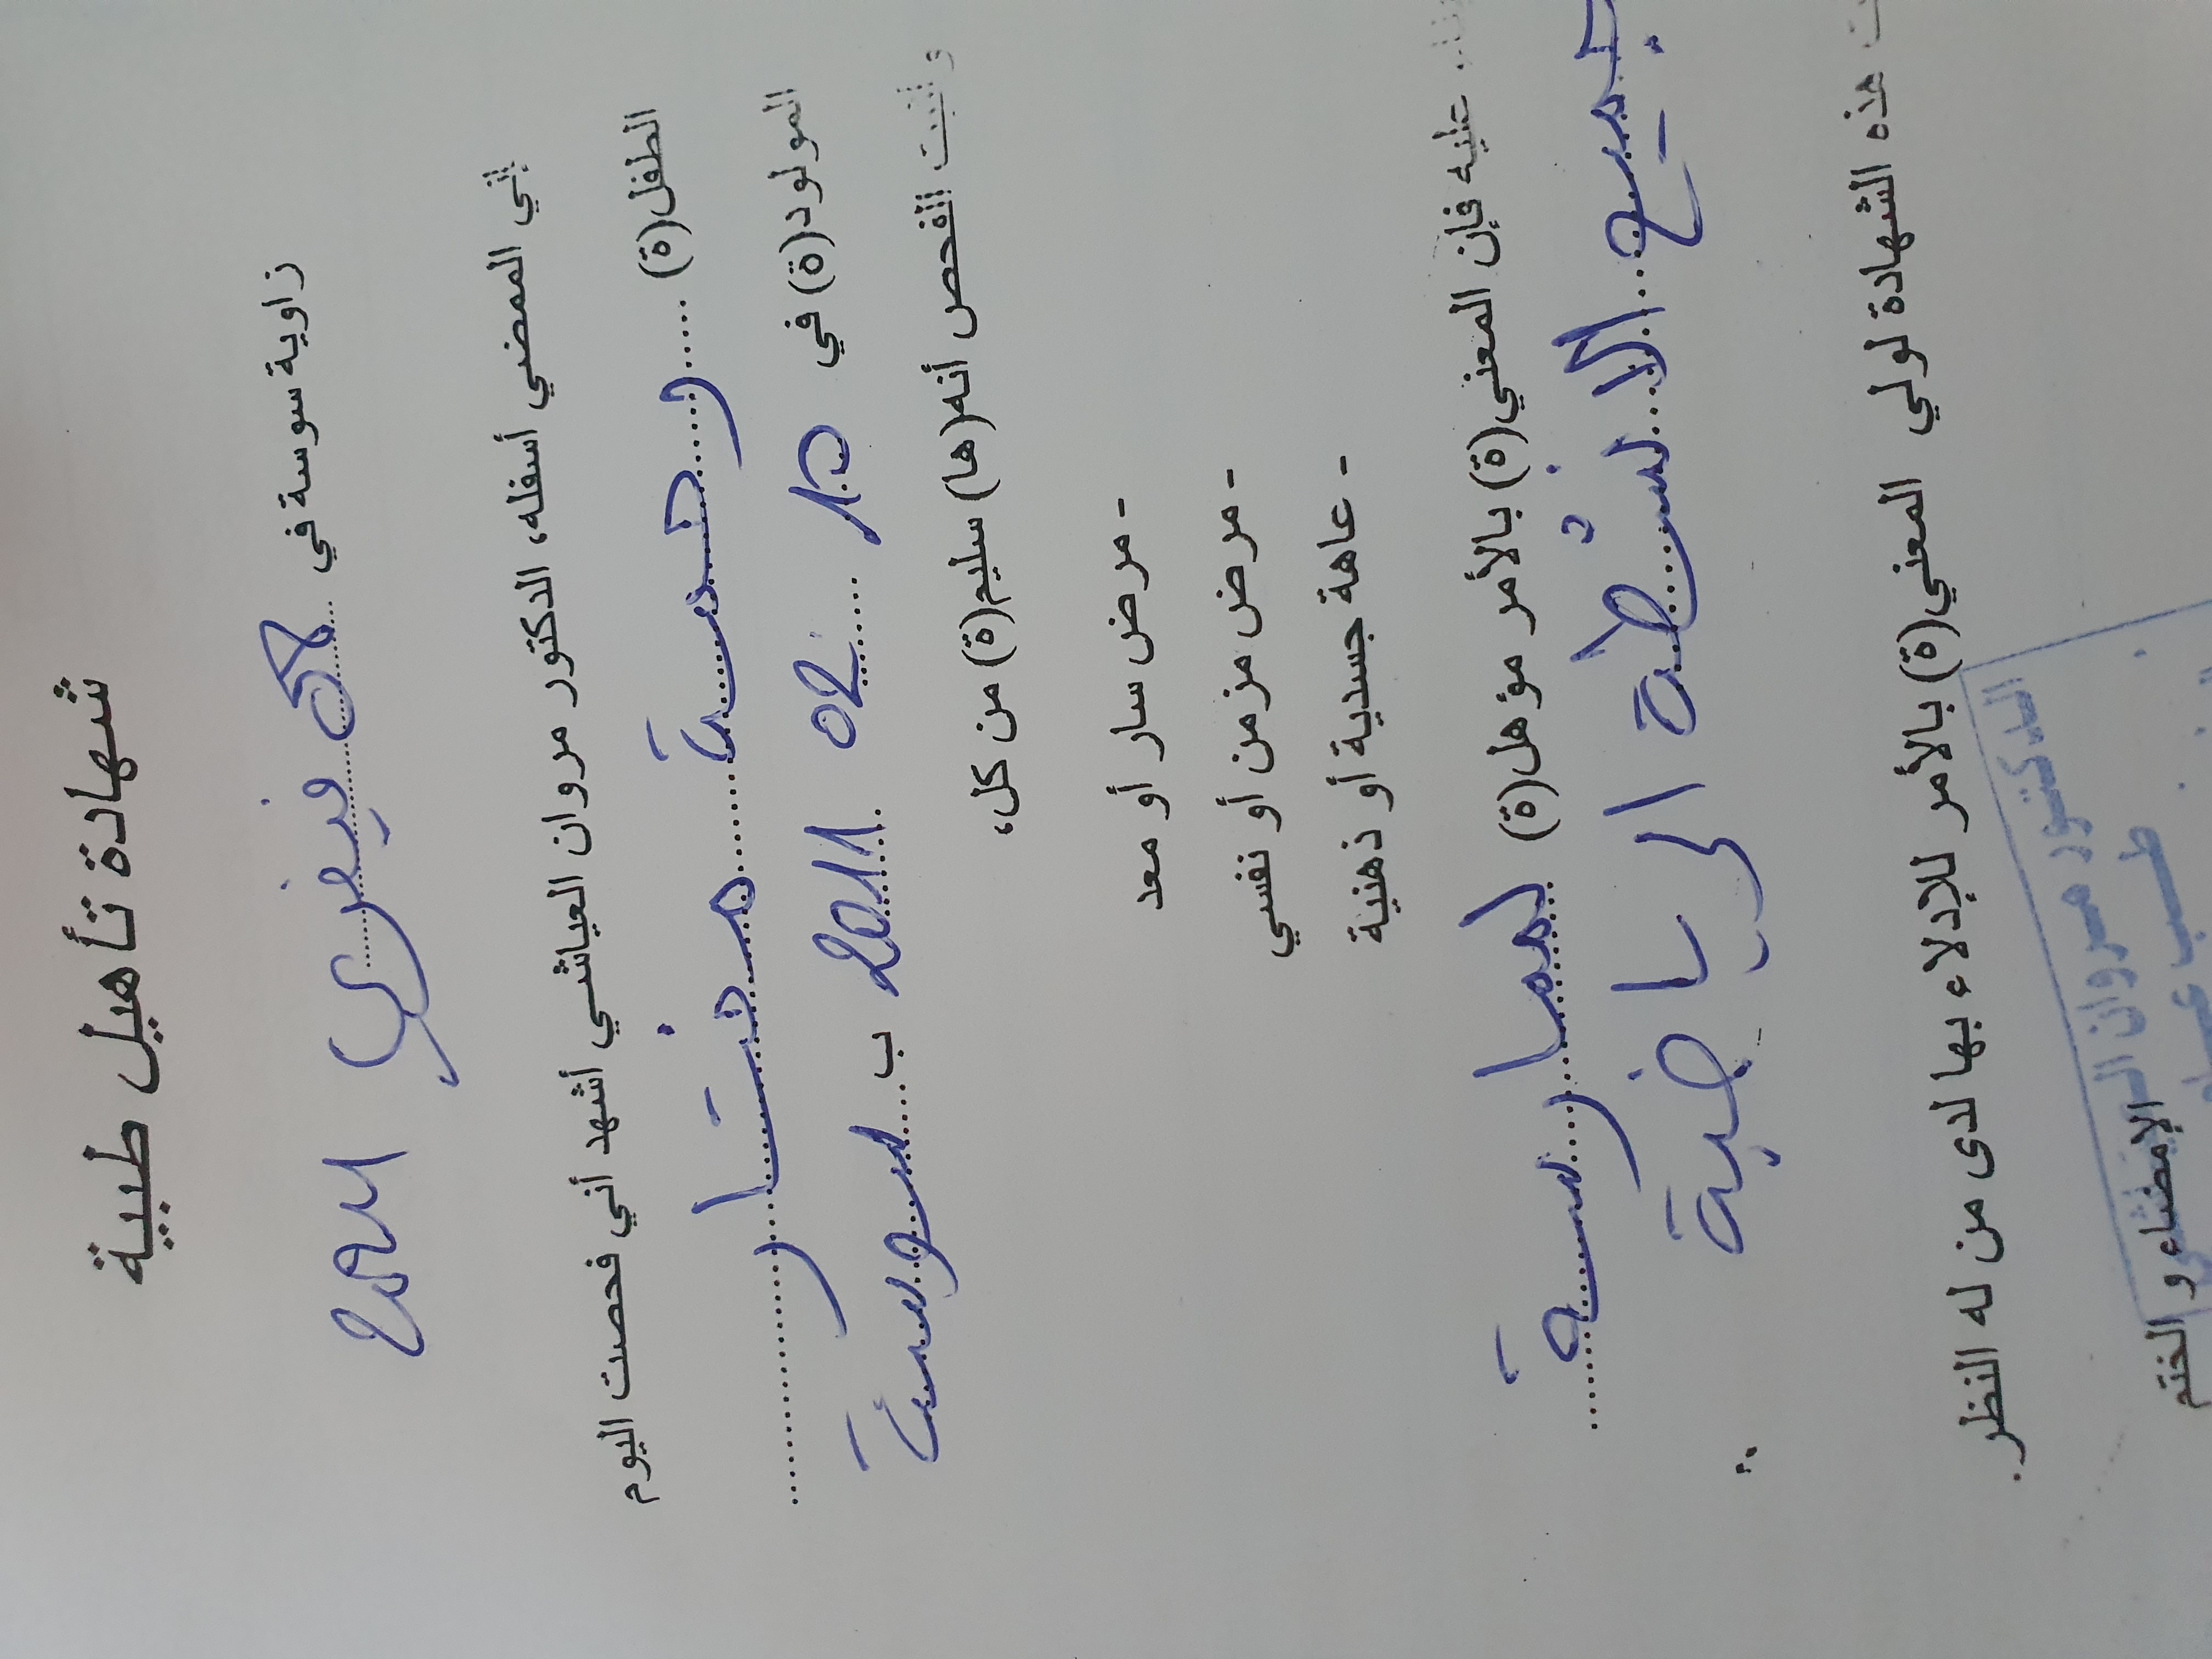 شهادة تأهيل طبية
زاوية سوسة في 08 فيفري 2021
إني الممضي أسفله، الدكتور مروان العياشي أشهد أني فحصت اليوم
الطفل(ة) رحمة مختار
المولود(ة) في 10 02 2011 ب سوسة
وأثبت الفحص أنه(ها) سليم(ة) من كل،
- مرض سار أو معد
- مرض مزمن أو نفسي
- عاهة جسدية أو ذهنية
عليه فإن المعني(ة) بالأمر مؤهل(ة) لممارسة
جميع الانشطة الرياضية
هذه الشهادة لولي المعني(ة) بالأمر للإدلاء بها لدى من له النظر.
الإمضاء و الختم
الدكتور مروان
طبيب